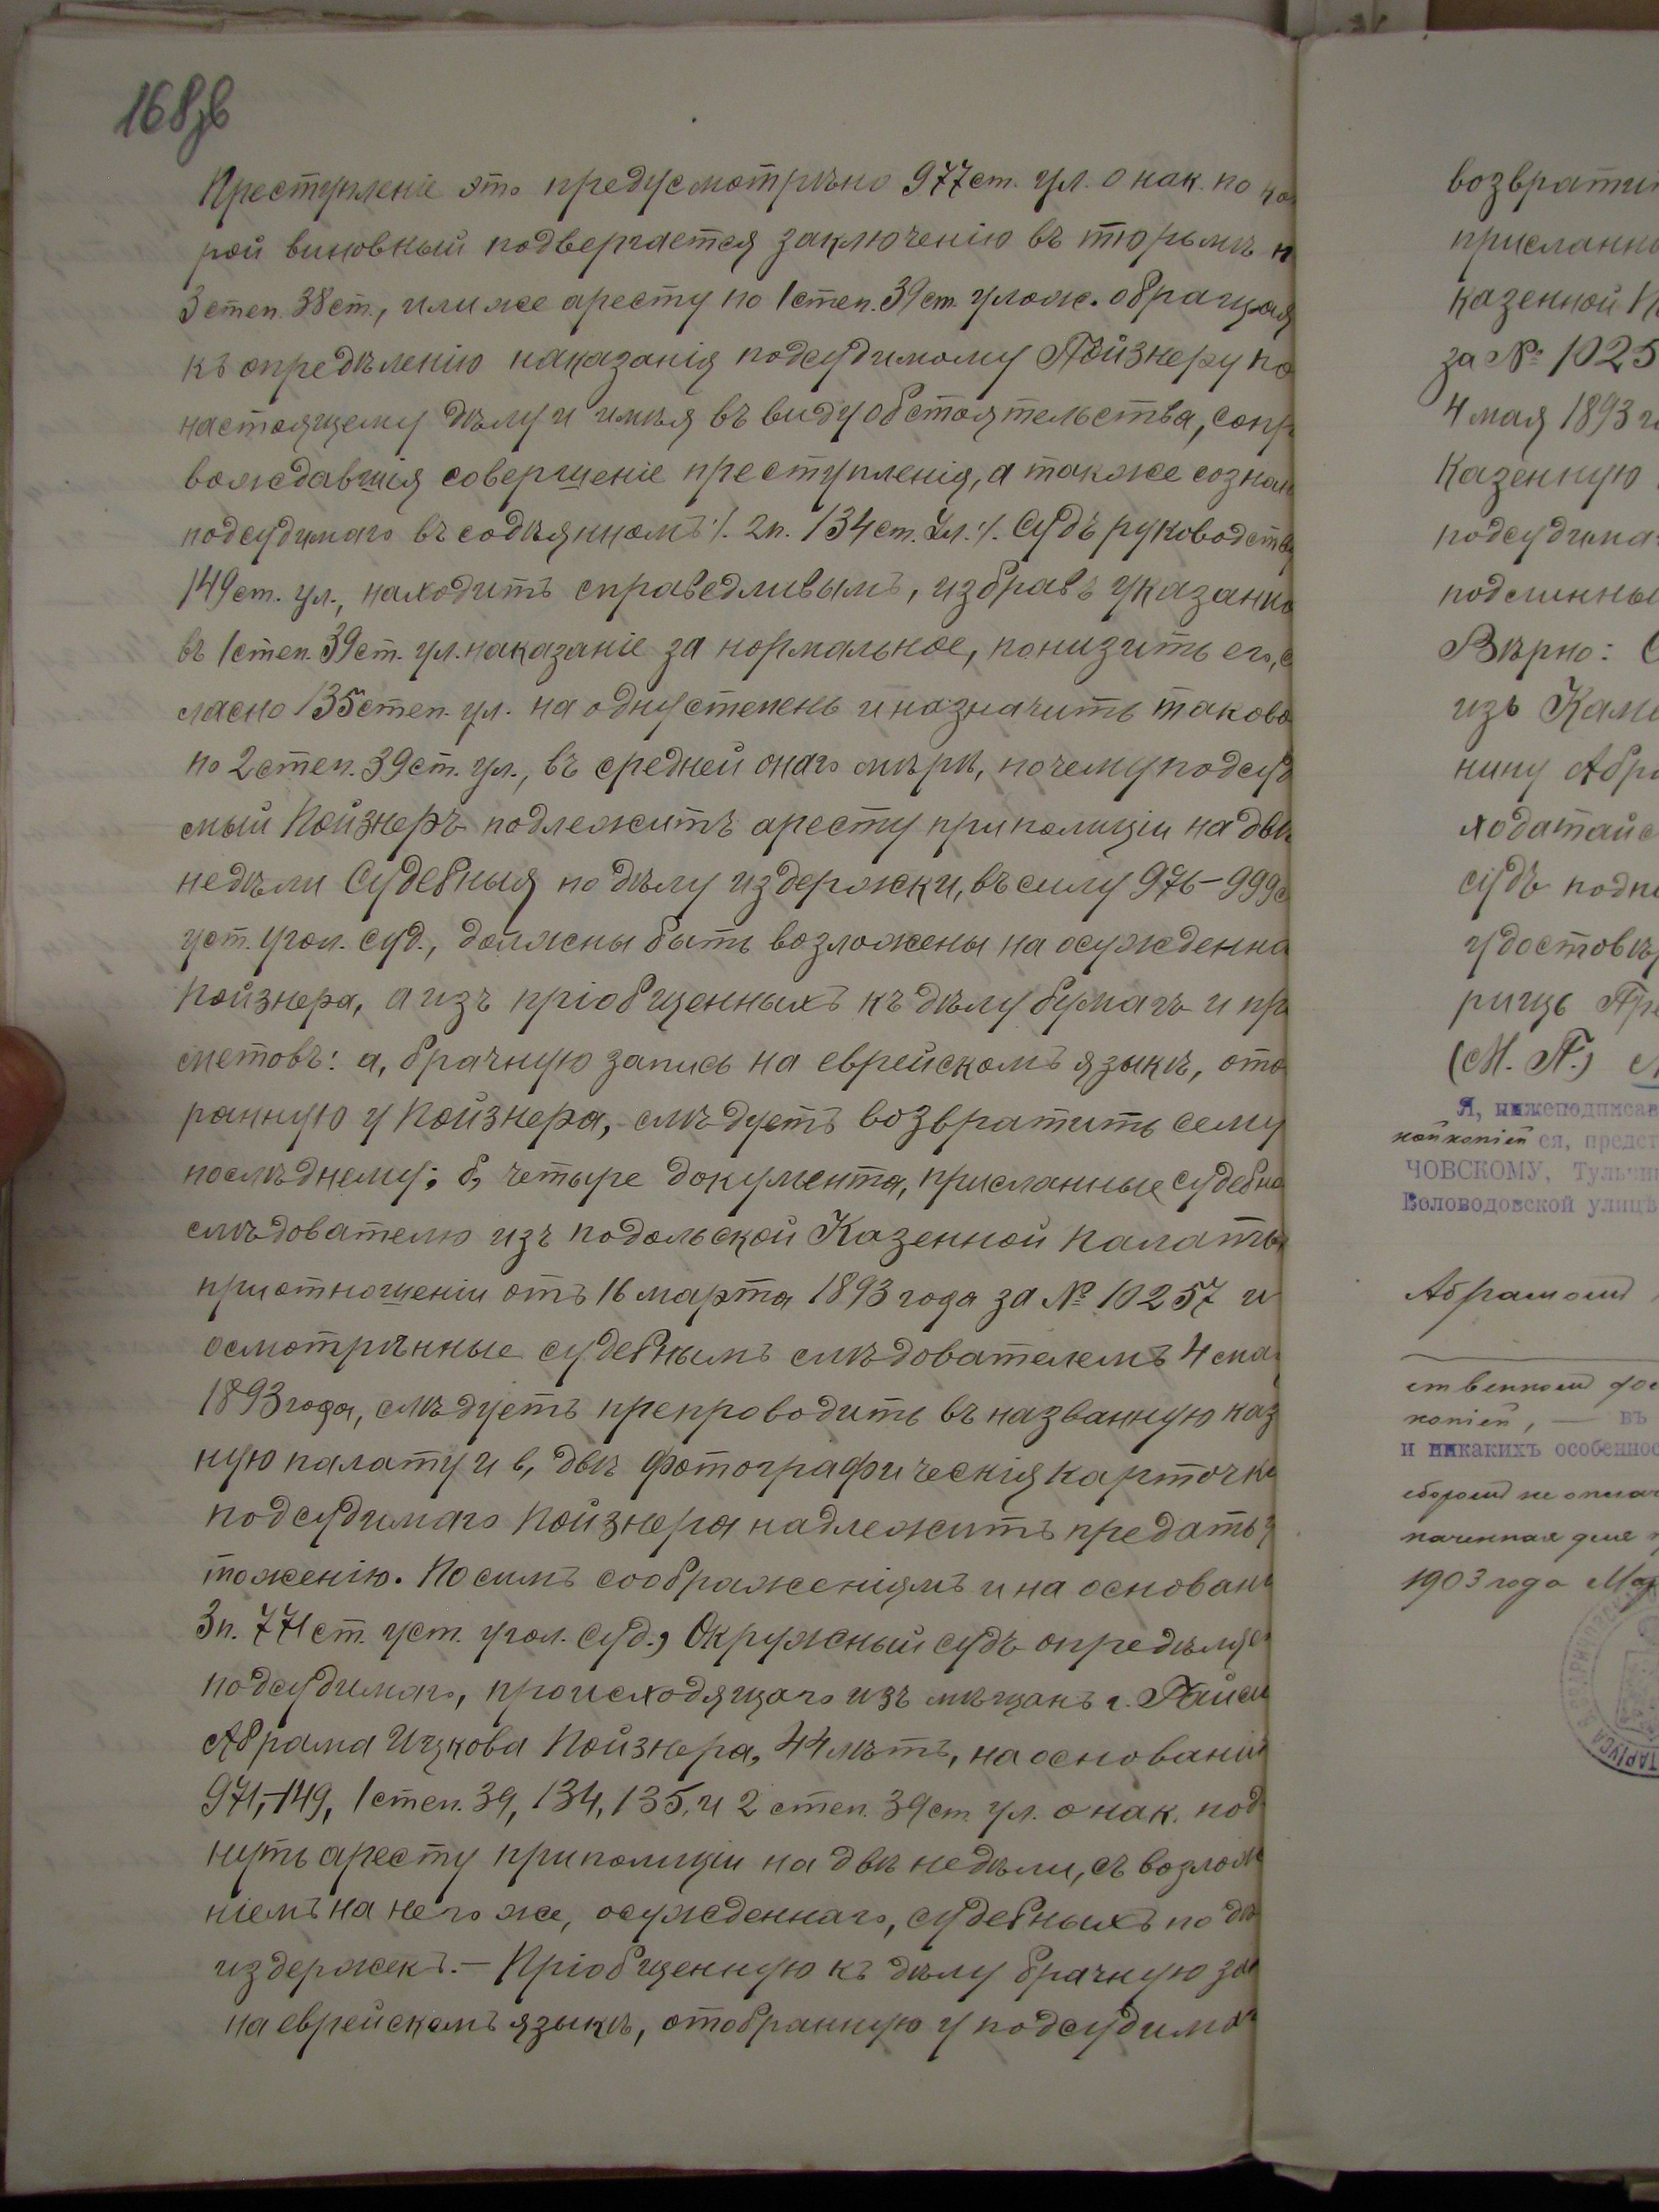 168зв
Преступленіе это предусмотрѣно 977 ст. ул. о нак. по ко
рой виновный подвергается заключенію въ тюрьмѣ п
3 степ. 38 ст., или же аресту по 1 степ. 39 ст. улож. обращая
къ опредѣленію наказанія подсудимому Пойзнеру по
настоящему дѣлу и имѣя въ виду обстоятельства, сопр
вождавшія совершеніе преступленія, а также сознан
подсудимаго въ содѣянномъ ·/. 2 п. 134 ст. Ул. ·/. Судъ руководству
149 ст. ул., находитъ справедливымъ, избравъ указанно
въ 1 степ. 39 ст. ул. наказаніе за нормальное, понизить его, с
ласно 135 степ. ул. на одну степень и назначить таково
по 2 степ. 39 ст. ул., въ средней онаго мѣрѣ, почему подсуд
мый Пойзнеръ подлежитъ аресту при полиціи на двѣ
недѣли Судебныя по дѣлу издержки, въ силу 976-999 с
уст. угол. суд., должны быть возложены на осужденна
Пойзнера, а изъ пріобщенныхъ къ дѣлу бумагъ и пр
метовъ: а, брачную запись на еврейскомъ языкѣ, ото
ранную у Пойзнера, слѣдуетъ возвратить сему
послѣднему; б, четыре документа, присланные судебно
слѣдователю изъ подольской Казенной палаты
при отношеніи отъ 16 марта 1893 года за № 10257 и
осмотрѣнные судебнымъ слѣдователемъ 4 мая
1893 года, слѣдуетъ препроводить въ названную каз
ную палату и в, двѣ фотографическія карточки
подсудимаго Пойзнера надлежитъ предать у
тоженію. По симъ соображеніямъ и на основані
3 п. 771 ст. уст. угол. суд., Окружный судъ опредѣляе
подсудимаго, происходящаго изъ мѣщанъ г. Гайси
Абрама Ицкова Пойзнера, 44 лѣтъ, на основаніи
971, 149, 1 степ. 39, 134, 135, и 2 степ. 39 ст. ул. о нак. под
нуть аресту при полиціи на двѣ недѣли, съ возлож
ніемъ на него же, осужденнаго, судебныхъ по дѣ
издержекъ.— Пріобщенную къ дѣлу брачную за
на еврейскомъ языкѣ, отобранную у подсудимаг
возврати
присланн
казенной П
за № 1025
4 мая 1893 г
Казенную
подсудима
подлинны
Вѣрно: С
изъ Каме
нину Абра
ходатайс
судъ подпи
удостовѣр
рищъ Пре
(М. П.)
Я, нижеподписав
ной копіей ся, предст
ЧОВСКОМУ, Тульчин
Воловодовской улицѣ
Абрамомъ
ственномъ
копіей, — въ
и никакихъ особеннос
сборомъ не оплач
наченная для
1903 года Мар